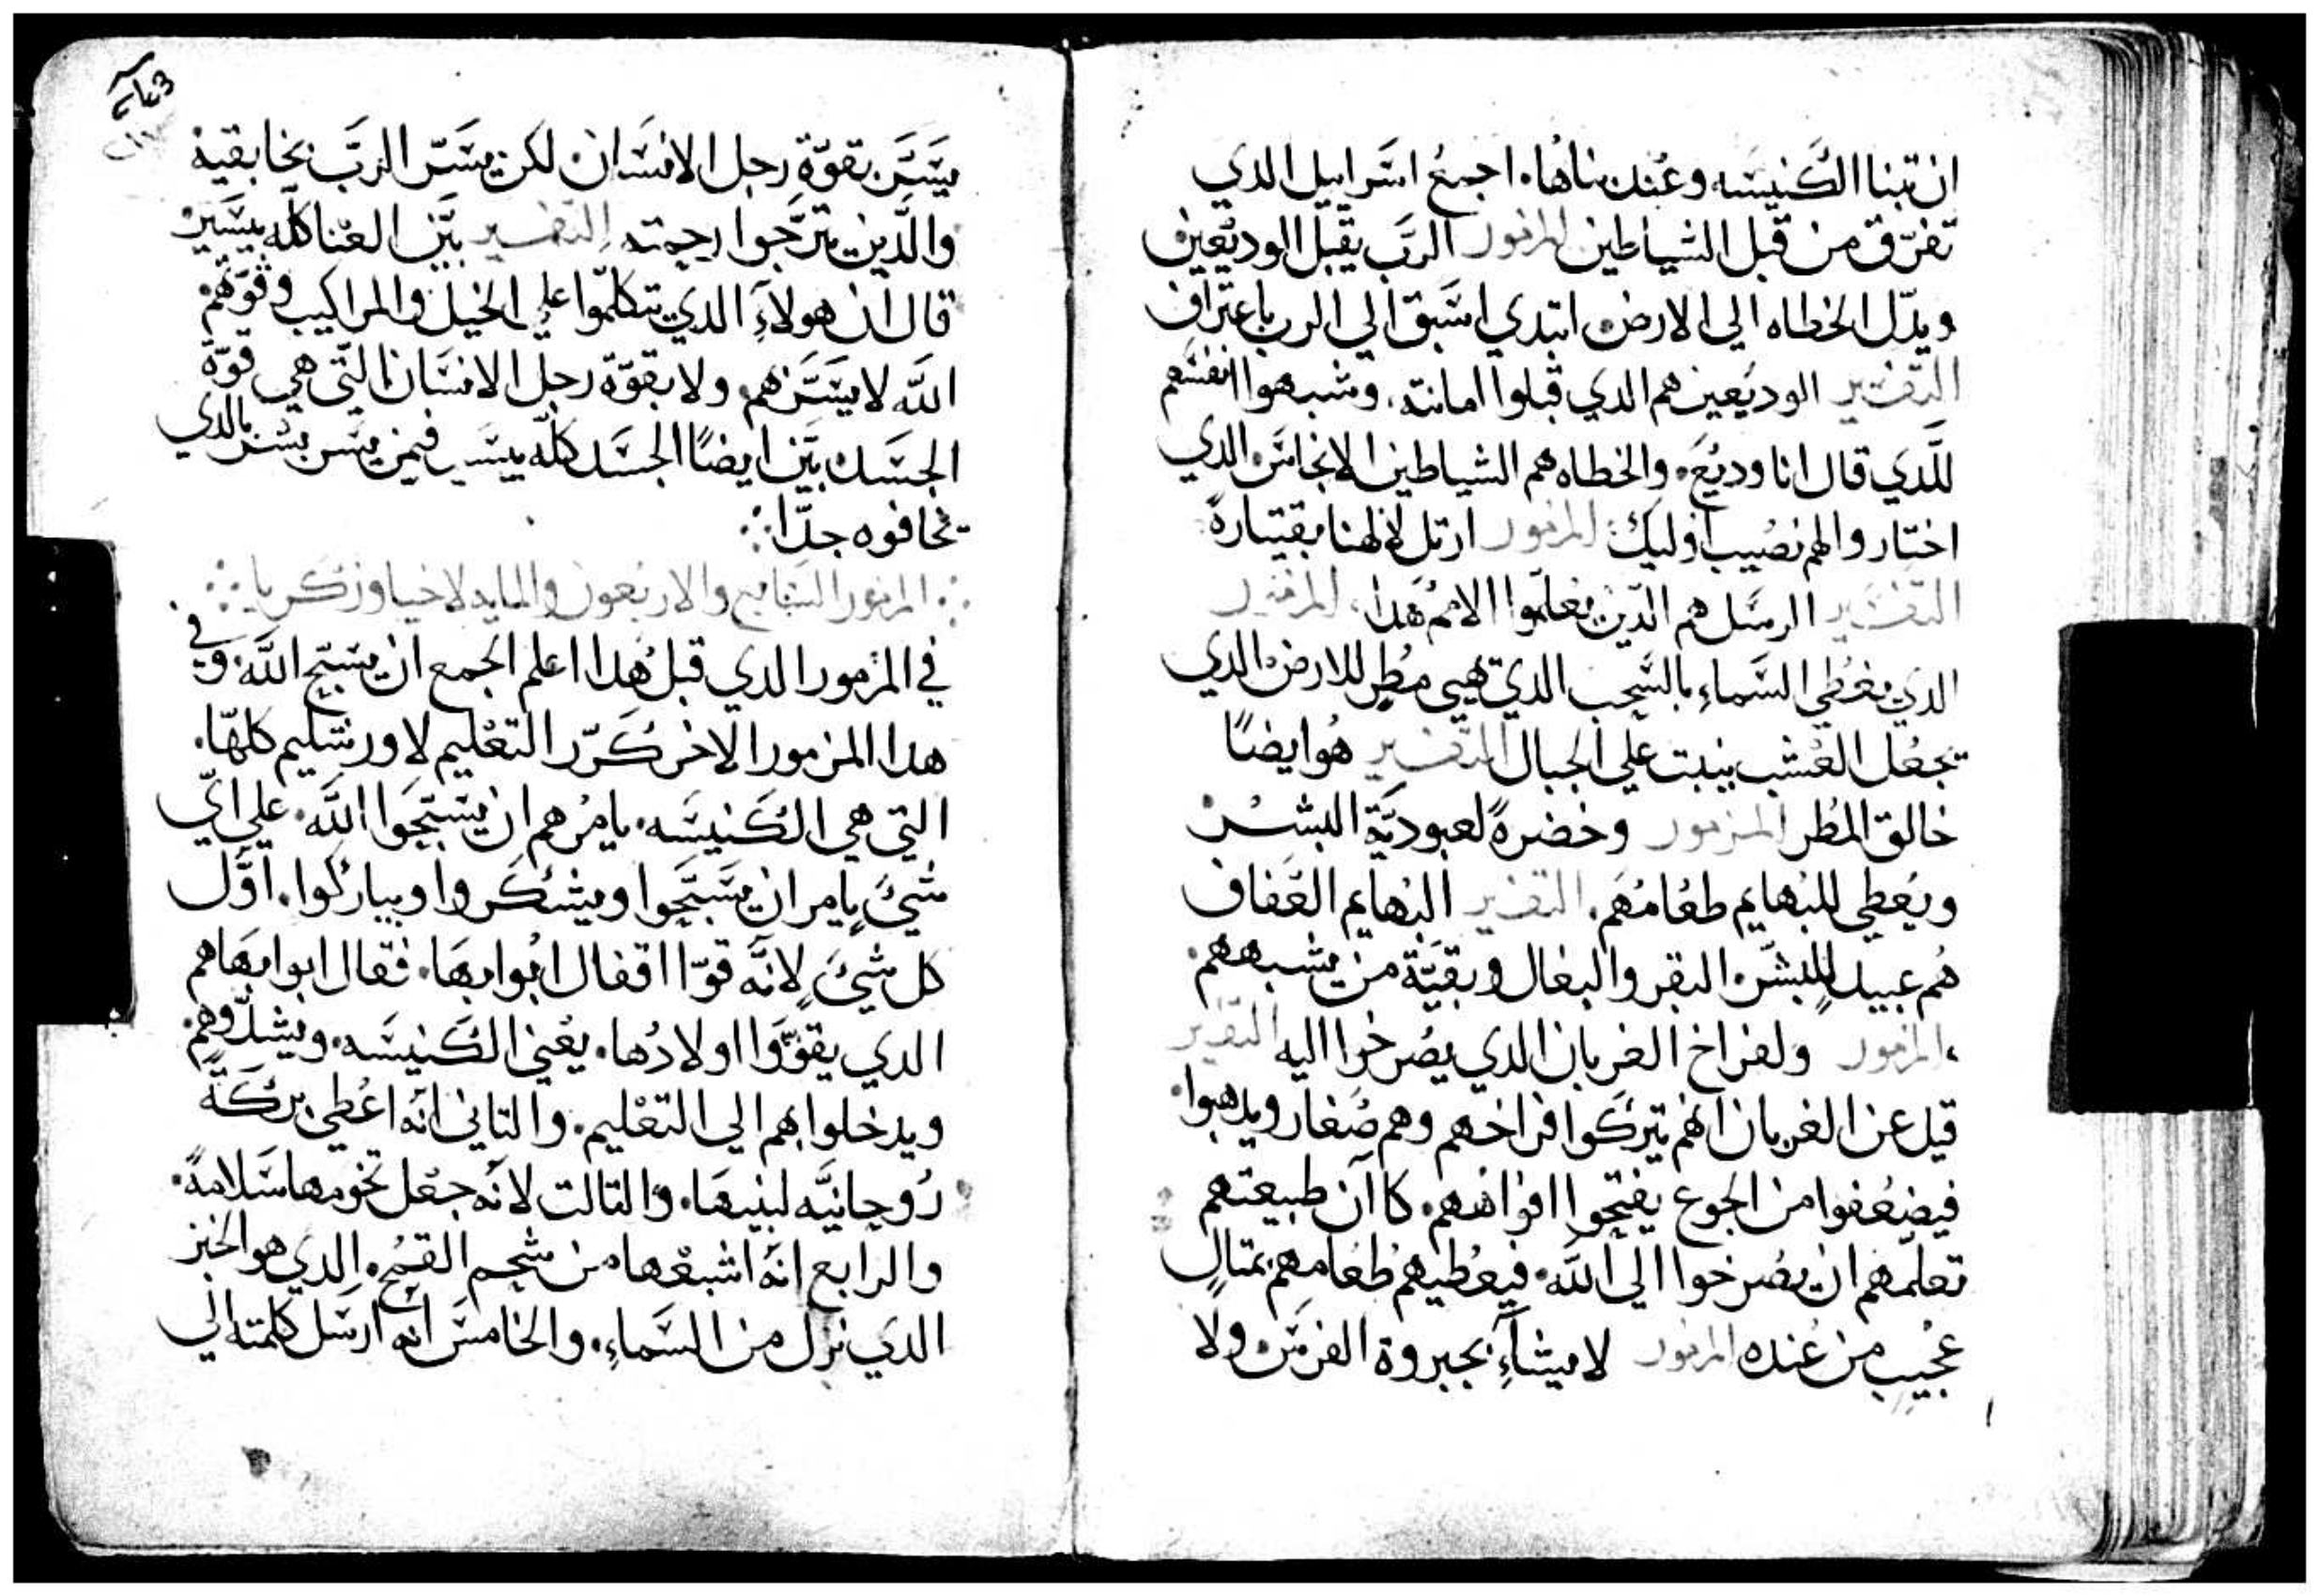 ان تبنا الكنيسه وعند بناها. اجمع اسراييل الدي
تفرق من قبل الشياطين المزمور الرب يقبل الوديعين
ويدل الخطاه الي الارض ابتدي اسبق الي الرب باعتراف
التفسير الوديعين هم الدي قبلوا امانته. وشبهوا انفسهم
للدي قال انا وديع. والخطاه هم الشياطين الانجاس الدي
اختاروا لهم نصيب اوليك المزمور ارتل لالهنا بقيتارة
التفسير الرسل هم الدين يعلموا الامم هدا. المزمور
الدي يغطي السماء بالسحب الدي تهيي مطر للارض الدي
يجعل العشب ينبت علي الجبال التفسير هو ايضا
خالق المطر المزمور وخضرة لعبودية البشر
ويعطي للبهايم طعامهم. التفسير البهايم العفاف
هم عبيد للبشر البقر والبغال وبقية من يشبههم.
المزمور ولفراخ الغربان الدي يصرخوا اليه التفسير
قيل عن الغربان انهم يتركوا افراخهم وهم صغار ويدهبوا.
فيضعفوا من الجوع يفتحوا افواههم. كاان طبيعتهم
تعلمهم ان يصرخوا الي الله. فيعطيهم طعامهم بمتال
عجيب من عنده المزمور لا يشاء بجبروة الفرس ولا
يسر بقوة رجل الانسان لكن يسر الرب بخايقيه
والدين يترجوا رحمته التفسير بين العنا كله يسير
قال ان هولاء الدي يتكلموا علي الخيل والمراكيب وقوتهم.
الله لا يسرهم. ولا بقوة رجل الانسان التي هي قوة
الجسد بين ايضا الجسد كله فمن يسر بالدي
تخافوه جدا
المزمور السابع والاربعون والمايه لاخيا وزكريا
في المزمور الدي قبل هدا اعلم الجمع ان يسبح الله وفي
هدا المزمور الاخر كرر التعليم لاورشليم كلها.
التي هي الكنيسه. يامرهم ان يسبحوا الله. علي اي
شيء يامر ان يسبحوا ويشكروا ويباركوا. اول
كل شيء لانه قوا اقفال ابوابها. فقال ابوابها هم
الدي يقووا اولادها. يعني الكنيسه. ويشدوهم.
ويدخلوا بهم الي التعليم. والتاني انه اعطي بركة
روحانيه لبنيها. والتالت لانه جعل تخومها سلامة.
والرابع انه اشبعها من شحم القمح. الدي هو الخبز
الدي نزل من السماء. والخامس انه ارسل كلمته الي